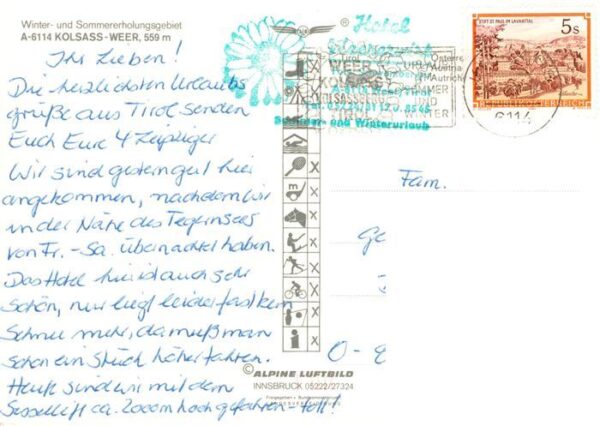 Winter- und Sommererholungsgebiet
A-6114 KOLSASS-WEER, 559 m
Ihr Lieben!
Die herzlichsten Urlaubs
grüße aus Tirol senden
Euch Eure 4 Leipziger
Wir sind gestern gut hier
angekommen, nachdem wir
in der Nähe des Tegernsees
von Fr. - Sa. übernachtet haben.
Das Hotel hier ist auch sehr
schön, nur liegt leider fast kein
Schnee mehr, da muß man
schon ein Stück höher fahren.
Heute sind wir mit dem
Sessellift ca. 2000m hoch gefahren - toll!
Hotel
WEER
KOLSASS
SOMMER
UND
WINTER
Sommer- und Winterurlaub
6114
STIFT ST. PAUL IM LAVANTTAL
5s
REPUBLIK ÖSTERREICH
Fam.
Ge
O-
© ALPINE LUFTBILD
INNSBRUCK 05222/27324